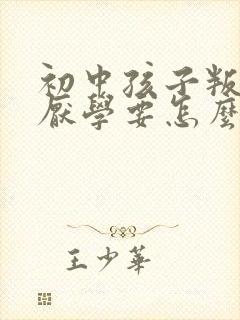 初中孩子叛
厭學要怎麼
王少華